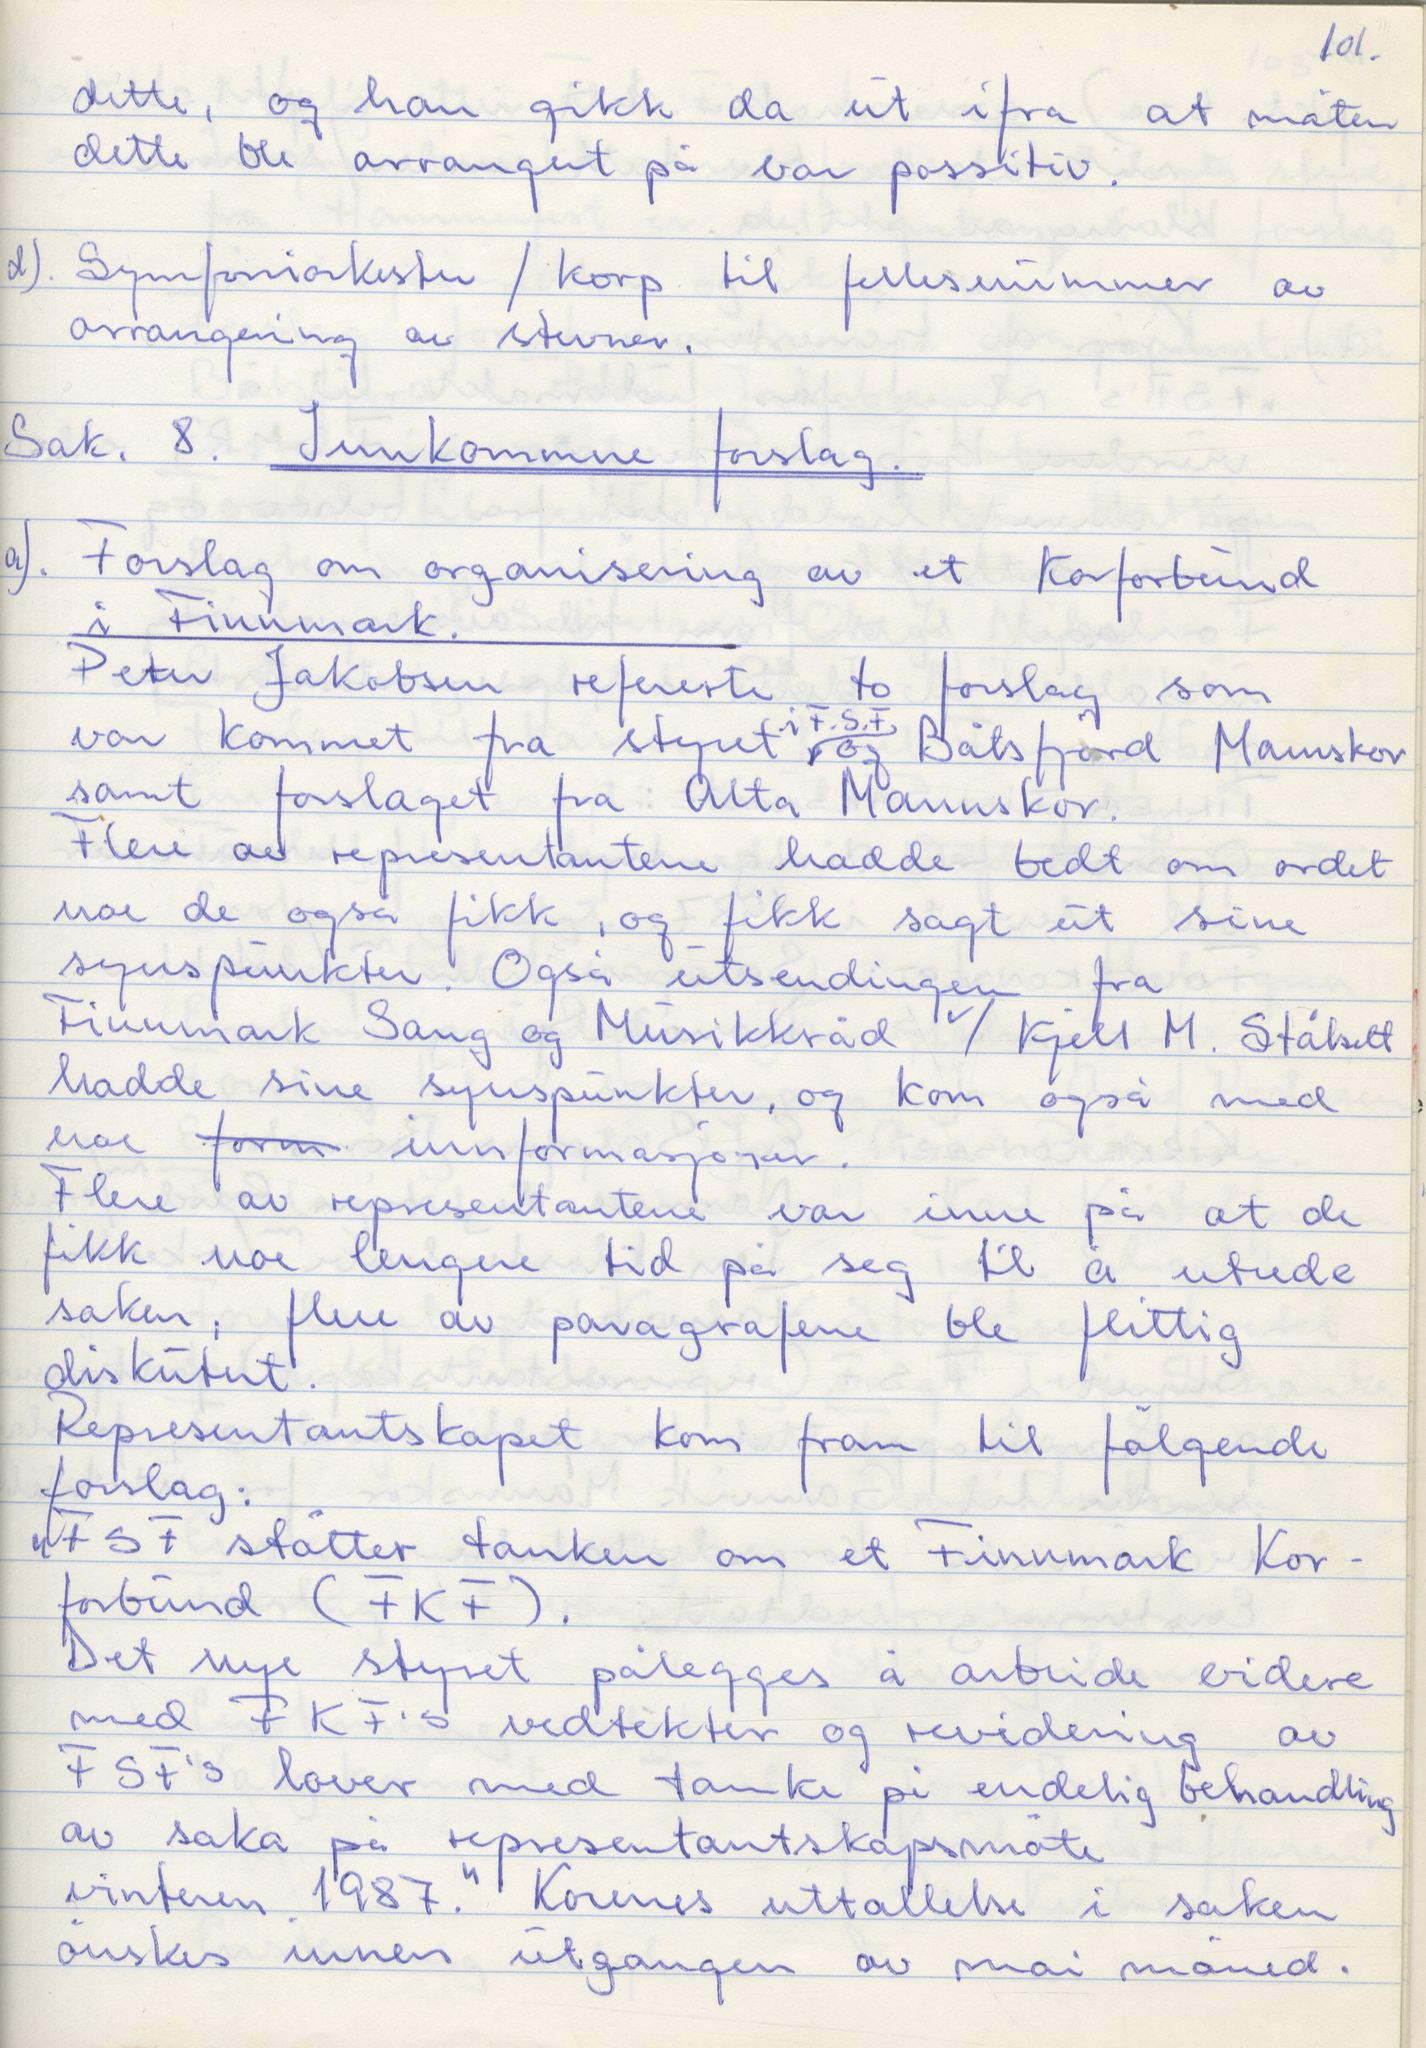 101.
dette, og han gikk da ut ifra at måten
dette ble arrangert på var possitiv.
d). Symfoniorkester / korp til fellesnummer av
arrangering av stevner.
Sak. 8. Innkommne forslag.
a). Forslag om organisering av et Korforbund
i Finnmark.
Peter Jakobsen refererte to forslag som
var kommet fra styret i F.S.F. og Båtsfjord Mannskor
samt forslaget fra Alta Mannskor.
Flere av representantene hadde bedt om ordet
noe de også fikk, og fikk sagt ut sine
synspunkter. Også utsendingen fra
Finnmark Sang og Musikkråd v/ Kjell M. Stålsett
hadde sine synspunkter, og kom også med
noe form innformasjoner.
Flere av representantene var inne på at de
fikk noe lengere tid på seg til å utrede
saken, flere av paragrafene ble flittig
diskutert.
Representantskapet kom fram til følgende
forslag:
"FSF støtter tanken om et Finnmark Kor-
forbund (FKF).
Det nye styret pålegges å arbeide videre
med FKF's vedtekter og revidering av
FSF's lover med tanke på endelig behandling
av saka på representantskapsmøte
vinteren 1987." Korenes uttallelse i saken
ønskes innen utgangen av mai måned.